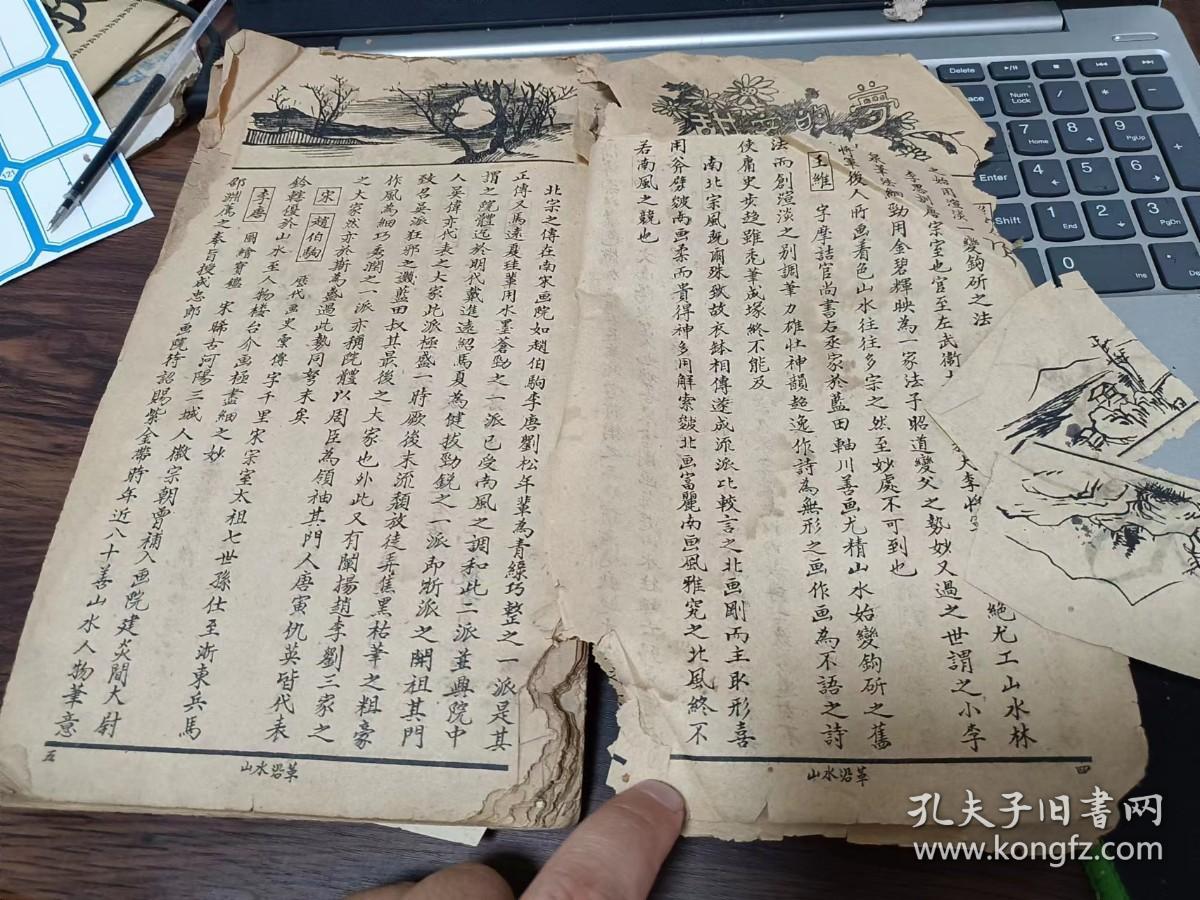 之始用渲淡一變鉤斫之法
李思訓 唐宗室也官至左武衛
大李將
絕尤工山水林
勁用金碧輝映為一家法子昭道變父之勢妙又過之世謂之小李
將軍後人所画着色山水往往多宗之然至妙處不可到也
王維 字摩詰官尚書右丞家於藍田輞川善画尤精山水始變鉤斫之舊
法而創渲淡之別調筆力雄壯神韻超逸作詩為無形之画作画為不語之詩
使庸史步趨雖禿筆成塚終不能及
南北宗風旣爾殊致故衣鉢相傳遂成派派比較言之北画剛而主取形喜
用斧劈皴南画柔而貴得神多用解索皴北画富麗南画風雅究之北風終不
若南風之競也
山水沿革
四
北宗之傳在南宋画院如趙伯駒李唐劉松年輩為青綠巧整之一派是其
正傳又馬遠夏珪輩用水墨蒼勁之一派已受南風之調和此二派並興院中
謂之院體迄於明代戴進遠紹馬夏為健拔勁銳之一派即浙派之開祖其門
人吳偉亦代表之大家此派極盛一時厥後末流頹放徒弄焦黑枯筆之粗豪
致召吳派狂邪之譏藍田叔其最後之大家也外此又有闡揚趙李劉三家之
作風為細巧為潤之一派亦稱院體以周臣為領袖其門人唐寅仇英皆代表
之大家然亦於斯為盛過此勢同弩末矣
宋 趙伯駒 歷代画史彙傳字千里宋宗室太祖七世孫仕至浙東兵馬
鈐轄優於山水至人物楼台介画極盡細之妙
李唐 圖繪寶鑑 宋睎古河陽三城人徽宗朝曾補入画院建炎間大尉
邵淵薦之奉旨授成忠郎画院待詔賜紫金帶時年近八十善山水人物筆意
山水沿革
五
Delete
Num Lock
7
Home
8
9
PgUp
4
5
6
Enter
Shift
1
End
2
3
PgDn
0
Ins
孔夫子旧書网
www.kongfz.com